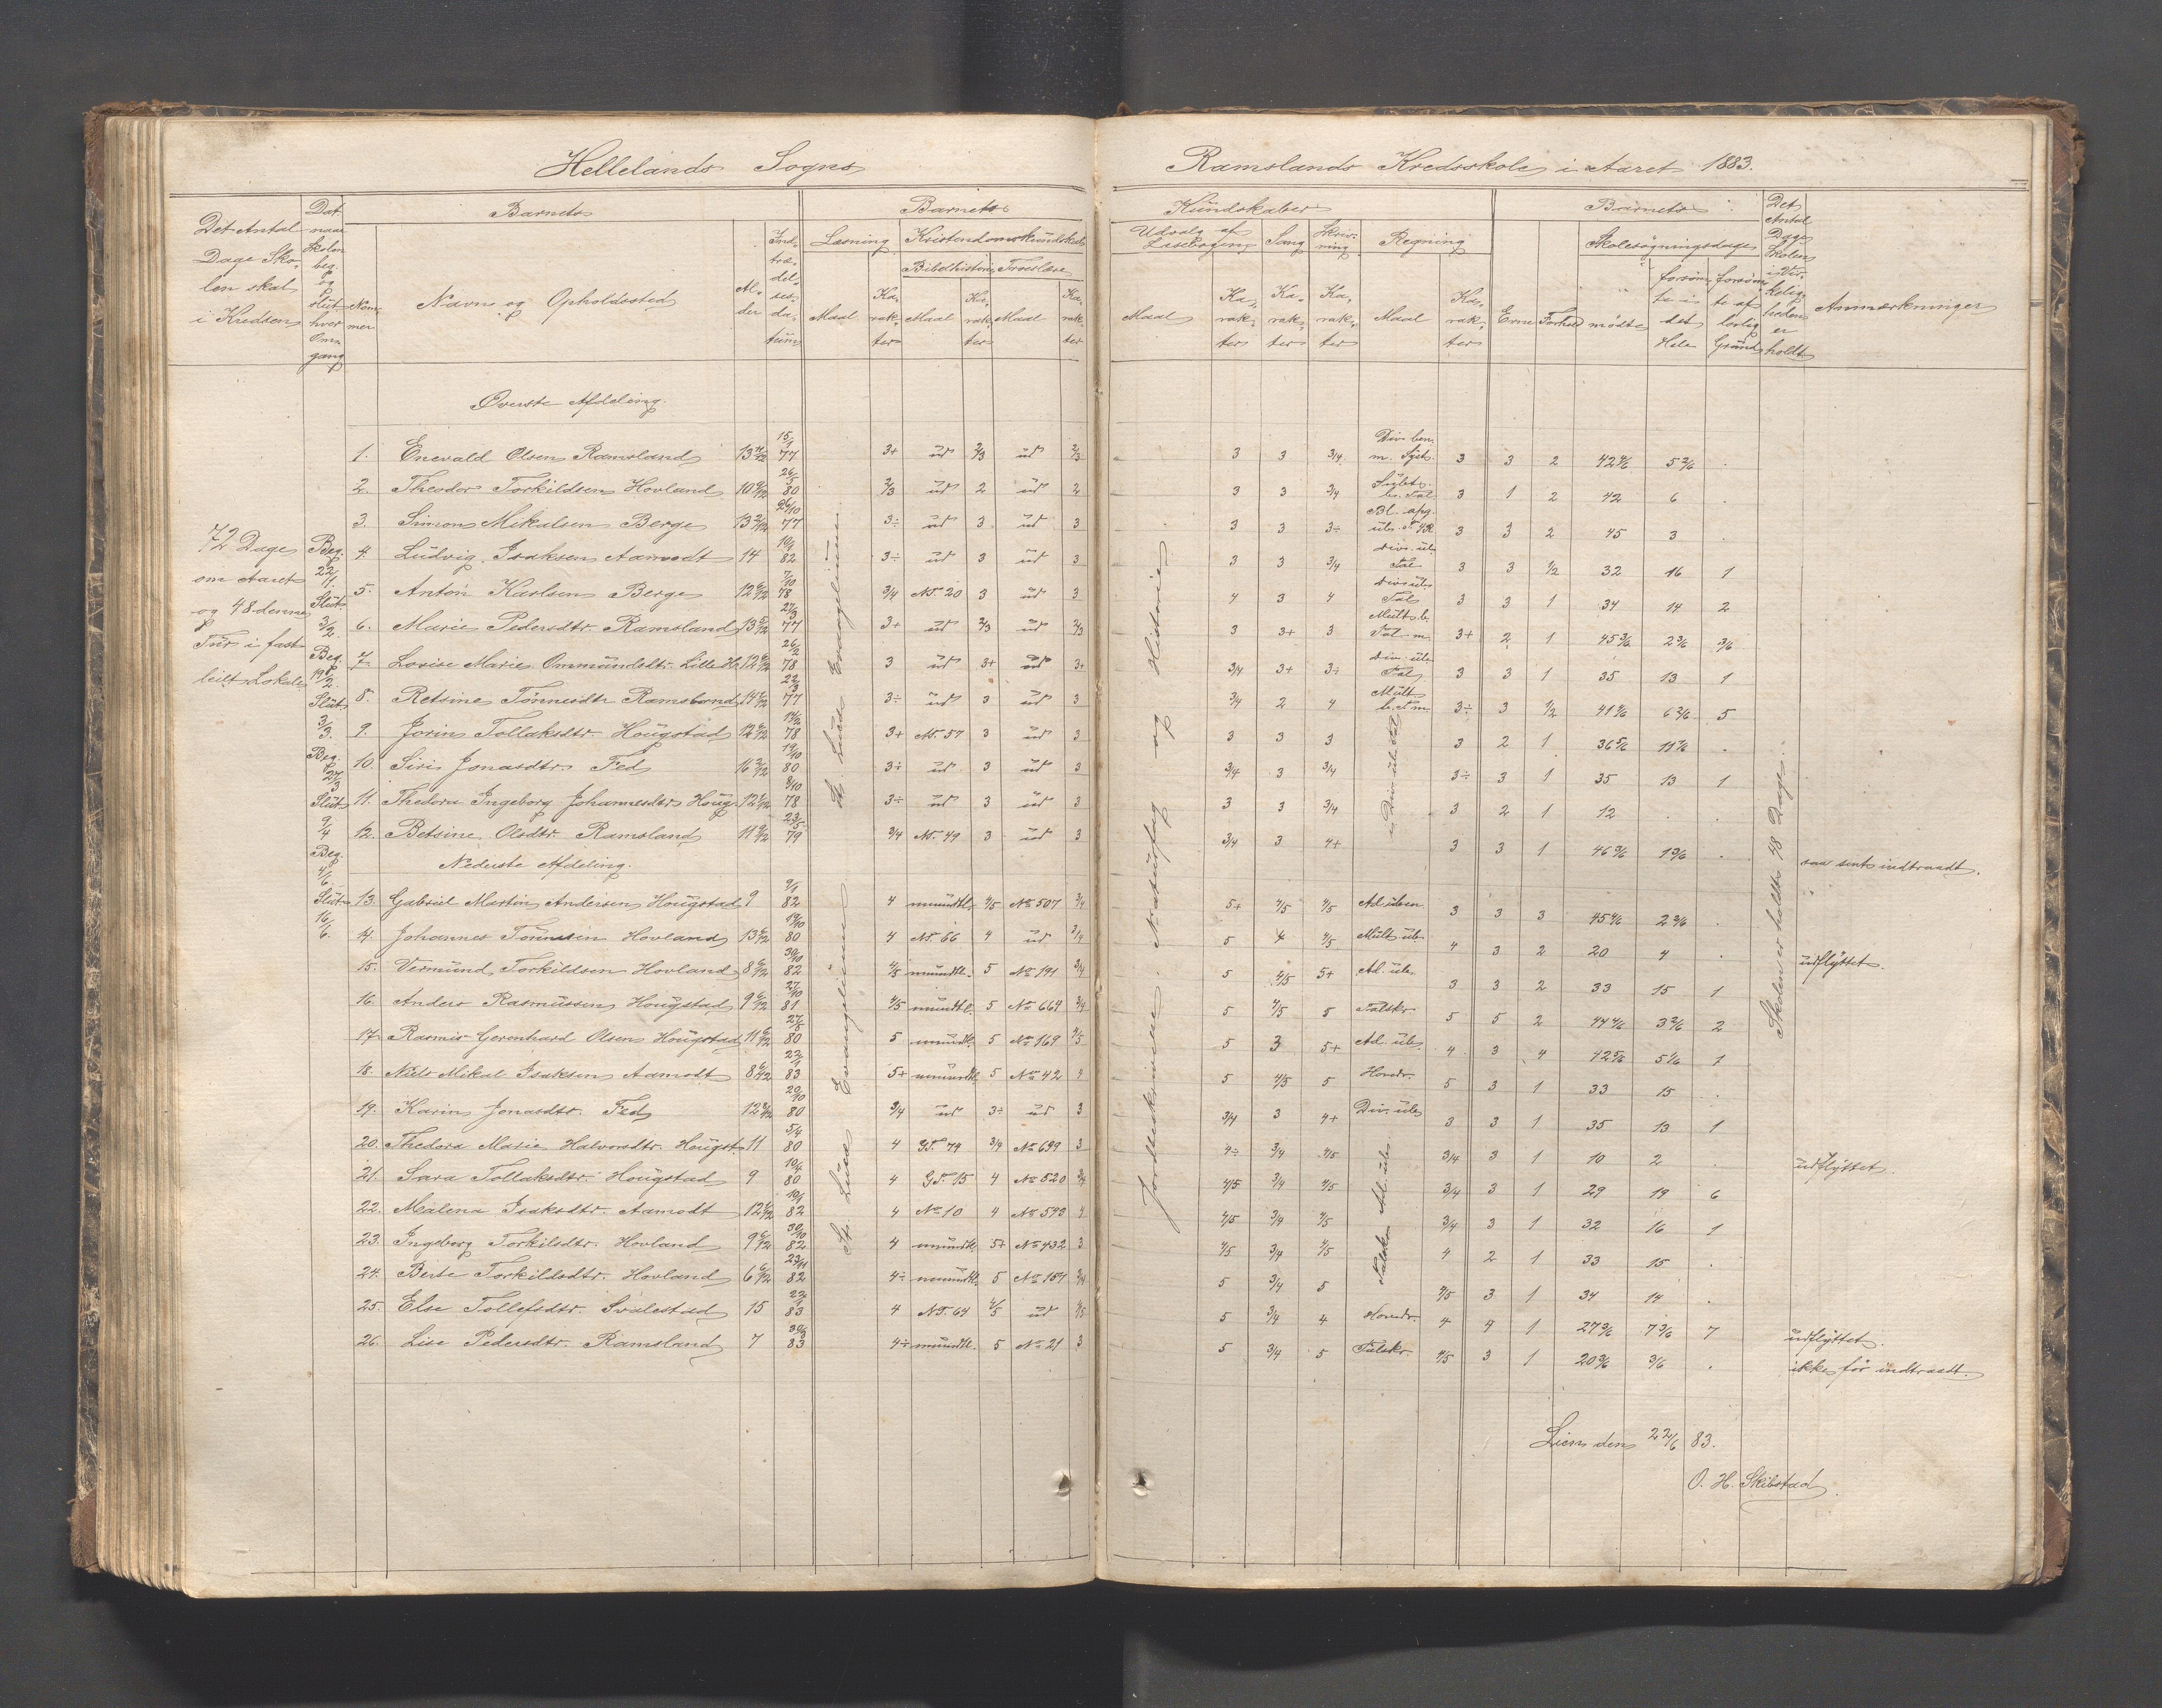 Hellelands Sogns
Ramslands Kredsskole i Aaret 1883.
Det Antal Dage Skolen skal i Kredsen
Dat. naar Skolen beg. og slut. hver Omgang
Barnets
Nummer
Navn og Opholdssted
Alder
Indtrædelsesdatum
Barnets
Læsning
Maal
Karakter
Kristendomskundskab
Bibelhistorie
Maal
Karakter
Troeslære
Maal
Karakter
Kundskaber
Udvalg af Læsebogen
Maal
Karakter
Sang
Karakter
Skrivning
Karakter
Regning
Maal
Karakter
Barnets
Evne
Forhold
Skolesøgningsdage
mødte
forsømte i det Hele
forsømte af lovlig Grund
Det Antal Dage Skolen i Virkeligheden er holdt
Anmærkninger
72 Dage
om Aaret
og 48 denne
Tur i fast
leiet Lokale
Beg. 22/1.
Slut. 3/2.
Beg. 19/2.
Slut 3/3.
Beg. 27/3
Slut 9/4
Beg. 4/6.
Slut 16/6.
St. Lucæ Evangelium
Jordbeskrivelse, Naturfag og Historie
Skolen er holdt 48 Dage.
Øverste Afdeling.
1. Enevald Olsen Ramsland 15/1 77 3+ ud 2/3 ud 2/3 3 3 3/4 Div. ben. m. Sift. 3 3 2 42 4/6 5 2/6 .
2. Theodor Torkildsen Hovland 10 26/5 80 2/3 ud 2 ud 2 3 3 3/4 3 1 2 42 6 .
3. Simon Mikalsen Berge 26/10 77 3÷ ud 3 ud 3 3 3 3÷ 3 3 2 45 3 .
4. Ludvig Isaksen Aamodt 14 19/1 82 3÷ ud 3 ud 3 3 3 3/4 Div. ub. Tal 3 3 1/2 32 16 1
5. Anton Karlsen Berge 7/10 78 3/4 N.T. 20 3 ud 3 4 3 4 Div. ub. Tal 3 3 1 34 14 2
6. Marie Pedersdtr. Ramsland 27/3 77 3+ ud 2/3 ud 2/3 3 3+ 3 Mult. b. Tal m. 3+ 2 1 45 3/6 2 3/6 3/6
7. Lovise Marie Ommundsdtr. Lille H. 26/2 78 3 ud 3+ ud 3+ 3/4 3+ 3÷ Div. ub. Tal 3 3 1 35 13 1
8. Retsine Tønnesdtr. Ramsland 22/3 77 3÷ ud 3 ud 3 3/4 2 4 Mult. b. T. m. 3÷ 3 1/2 41 4/6 6 2/6 5
9. Jorine Tollaksdtr. Hougstad 14/2 78 3+ N.T. 57 3 ud 3 3 3 3 3 2 1 36 5/6 11 1/6 .
10. Siri Jonasdtr. Fed 19/10 80 3÷ ud 3 ud 3 3/4 3 3/4 3÷ 3 1 35 13 1
11. Thedora Ingeborg Johannesdtr. Houg. 8/10 78 3÷ ud 3 ud 3 3 3 3/4 3 2 1 12 . .
12. Betsine Olsdtr. Ramsland 23/5 79 3/4 N.T. 49 3 ud 3 3/4 3 4+ 3 3 1 46 3/6 1 3/6 . saa sent indtraadt.
Nederste Afdeling.
13. Gabriel Martin Andersen Hougstad 9 9/1 82 4 mundtl. 4/5 No 507 3/4 5+ 4/5 4/5 Ad. uben. 3 3 3 45 4/6 2 2/6 .
14. Johannes Tønnesen Hovland 19/10 80 4 N.T. 66 4 ud 3/4 5 4 4/5 Mult. ub. 4 3 2 20 4 . udflyttet.
15. Vermund Torkildsen Hovland 30/10 82 4/5 mundtl. 5 No 191 3/4 5 4/5 5+ Ad. ub. 3 3 2 33 15 1
16. Anders Rasmussen Hougstad 27/10 81 4/5 mundtl. 5 No 664 3/4 5 4/5 5 Talskr. 5 5 2 44 4/6 3 2/6 2
17. Rasmus Gerenhard Olsen Hougstad 27/5 80 5 mundtl. 5 No 169 4/5 5 3 5+ Ad. ub. 4 3 4 42 5/6 5 1/6 1
18. Niels Mikal Isaksen Aamodt 22/1 83 5+ mundtl. 5 No 42 4 5 4/5 5 Hovedr. 5 3 1 33 15 .
19. Karin Jonasdtr. Fed 20/10 80 3/4 ud 3÷ ud 3 3/4 3 4+ Div. ub. 3 3 1 35 13 1
20. Thedora Marie Halvorsdtr. Hougst. 11 5/4 80 4 G.T. 74 3/4 No 699 3 4÷ 3/4 4/5 3/4 3 1 10 2 . udflyttet.
21. Sara Tollaksdtr. Hougstad 9 10/4 80 4 G.T. 15 4 No 520 3/4 4/5 3/4 4/5 Ad. ub. 3/4 3 1 29 19 6
22. Malena Isaksdtr. Aamodt 19/1 82 4 No 10 4 No 593 4 4/5 3/4 4/5 3/4 3 1 32 16 1
23. Ingeborg Torkilsdtr. Hovland 30/10 82 4 mundtl. 5+ No 432 3 4/5 3/4 4/5 Talskr. 4 2 1 33 15 .
24. Berte Torkildsdtr. Hovland 23/11 82 4÷ mundtl. 5 No 157 3/4 5 3/4 5 4/5 3 1 34 14 .
25. Else Tollefsdtr. Svalestad 15 22/1 83 4 N.T. 64 4/5 ud 4/5 5 3/4 4 Hovedr. 4 4 1 27 3/6 7 3/6 7 udflyttet.
26. Lise Pedersdtr. Ramsland 7 83 4÷ mundtl. 5 No 21 3 5 3/4 5 Talskr. 4/5 3 1 20 3/6 3/6 . ikke før indtraadt.
Lien den 22/6 83.
O. H. Skibstad.